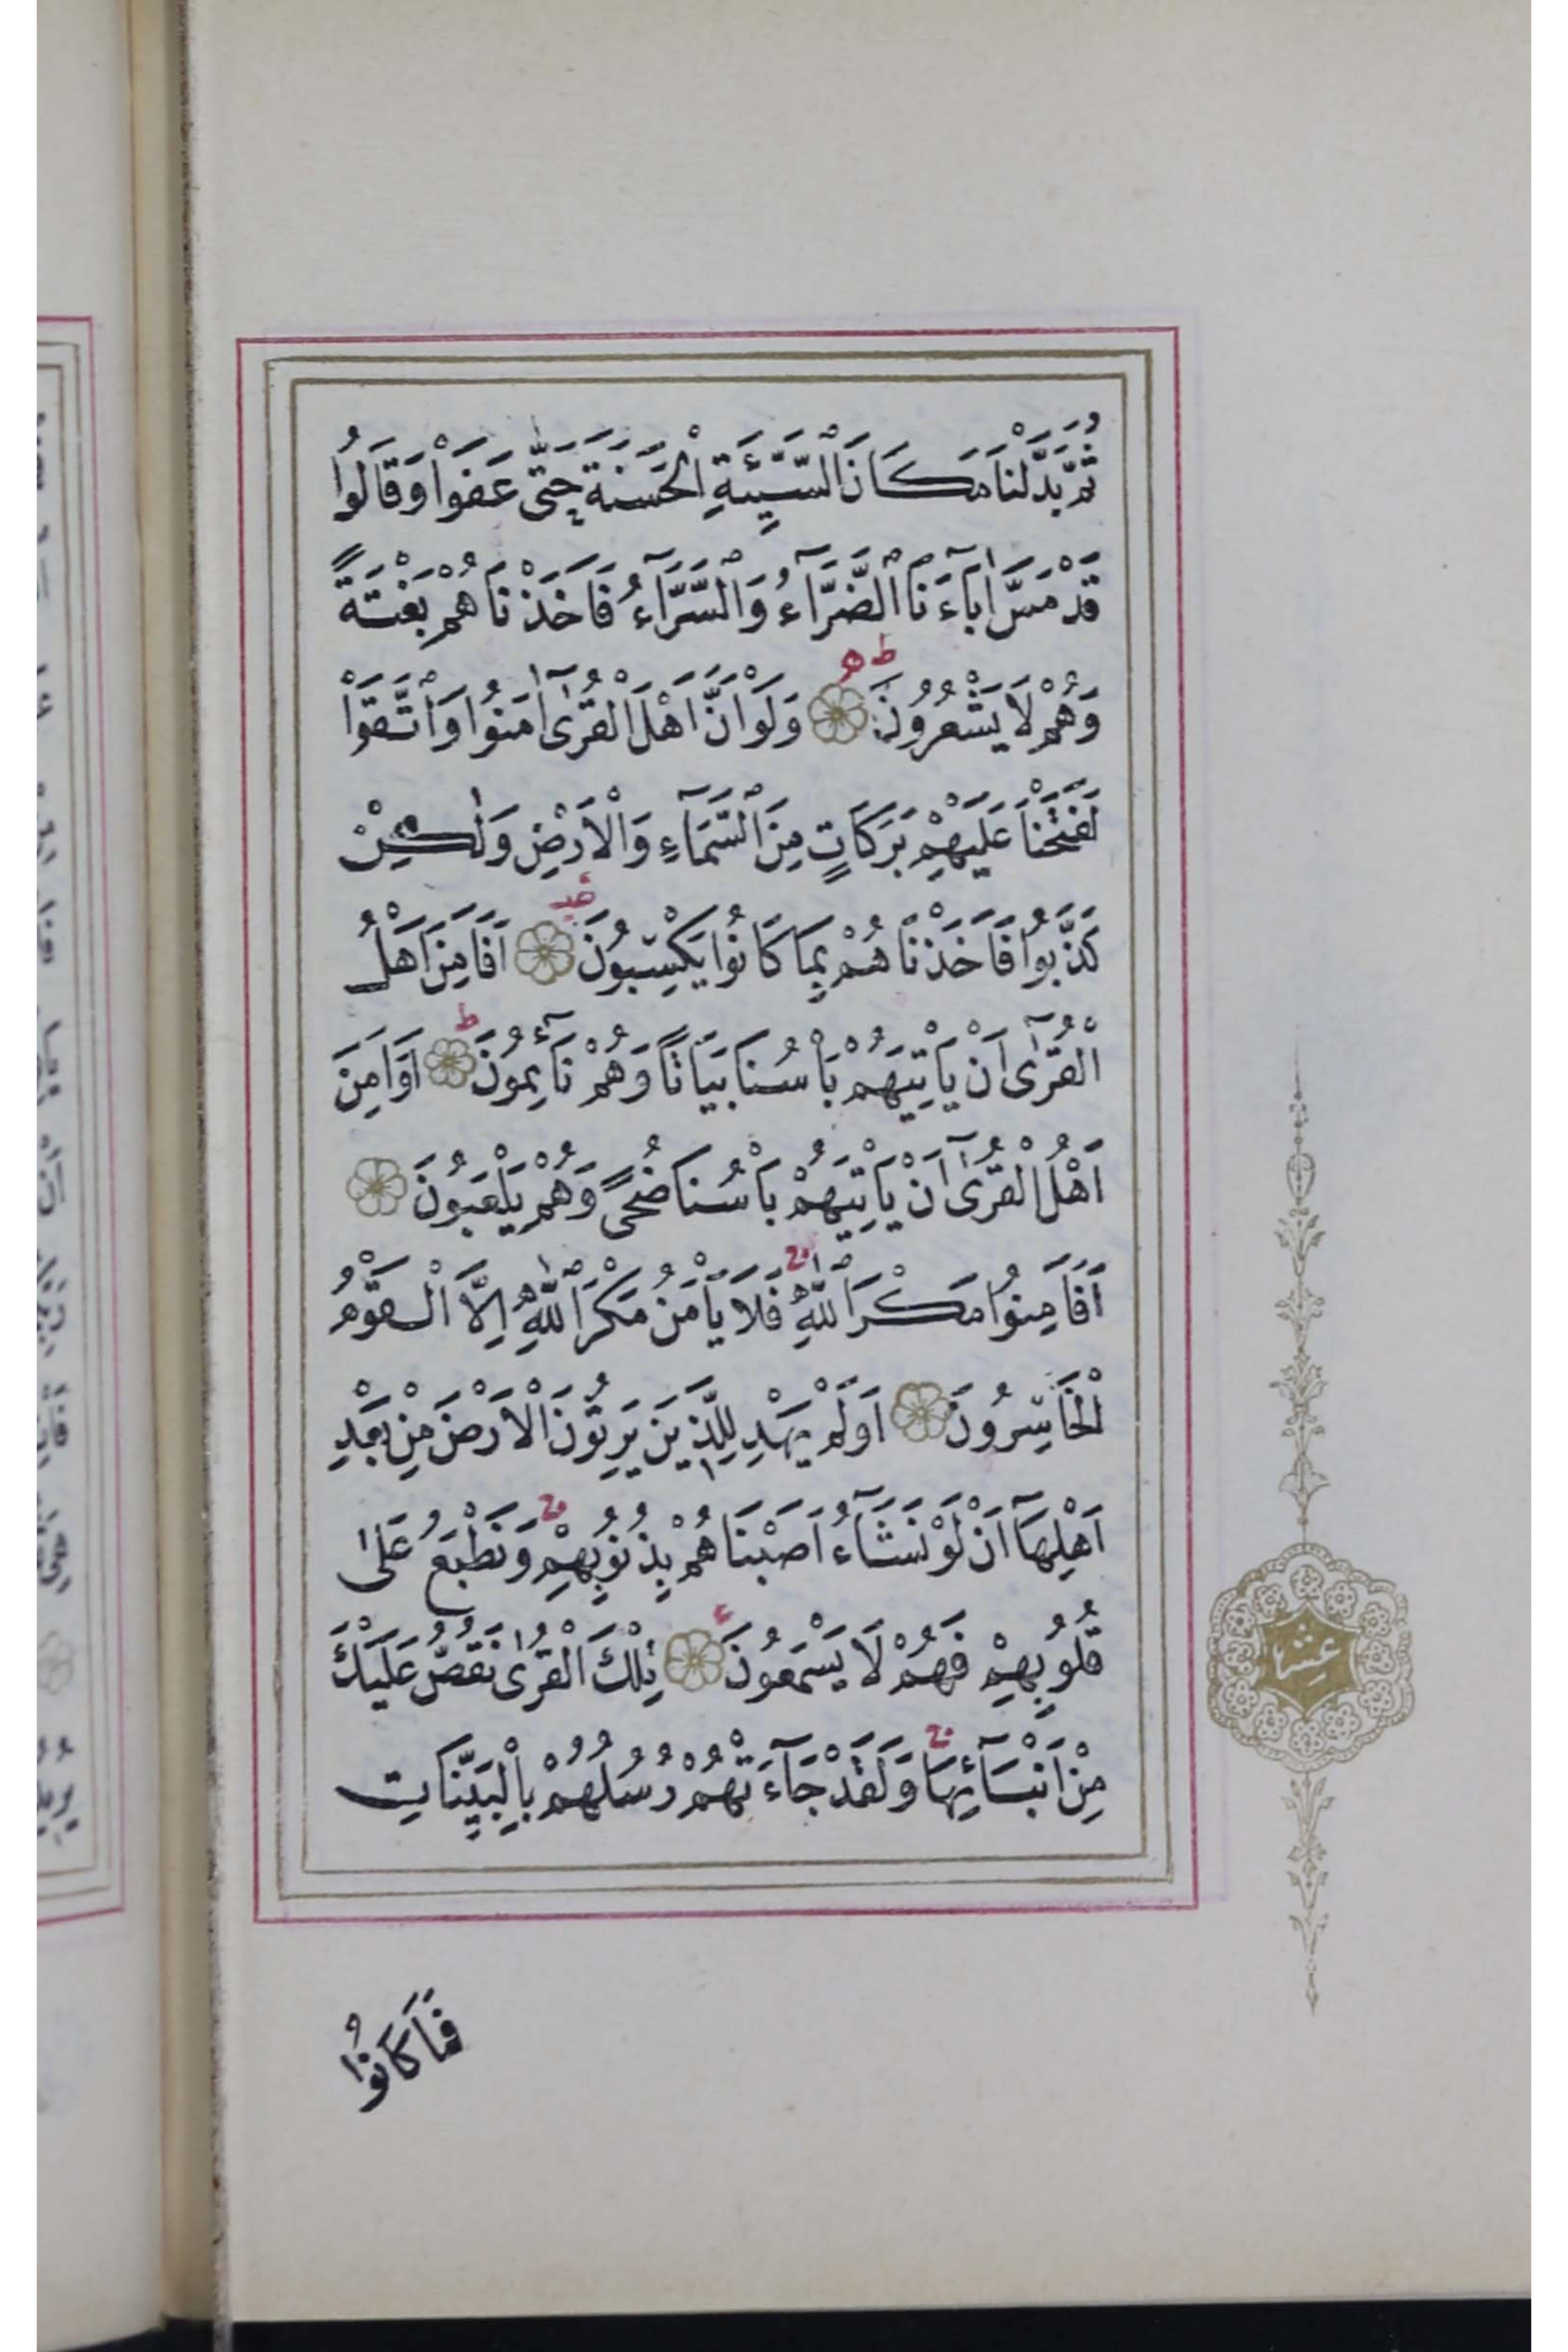 ثُمَّ بَدَّلْنَا مَكَانَ السَّيِّئَةِ الْحَسَنَةَ حَتّٰى عَفَوْا وَقَالُوا
قَدْ مَسَّ اٰبَٓاءَنَا الضَّرَّٓاءُ وَالسَّرَّٓاءُ فَاَخَذْنَاهُمْ بَغْتَةً
ط هـ
وَهُمْ لَا يَشْعُرُونَ وَلَوْ اَنَّ اَهْلَ الْقُرٰٓى اٰمَنُوا وَاتَّقَوْا
لَفَتَحْنَا عَلَيْهِمْ بَرَكَاتٍ مِنَ السَّمَٓاءِ وَالْاَرْضِ وَلٰكِنْ
كَذَّبُوا فَاَخَذْنَاهُمْ بِمَا كَانُوا يَكْسِبُونَ اَفَاَمِنَ اَهْلُ
ط
الْقُرٰٓى اَنْ يَأْتِيَهُمْ بَأْسُنَا بَيَاتًا وَهُمْ نَٓائِمُونَ اَوَاَمِنَ
اَهْلُ الْقُرٰٓى اَنْ يَأْتِيَهُمْ بَأْسُنَا ضُحًى وَهُمْ يَلْعَبُونَ
ج
اَفَاَمِنُوا مَكْرَ اللّٰهِ فَلَا يَأْمَنُ مَكْرَ اللّٰهِ اِلَّا الْقَوْمُ
الْخَاسِرُونَ اَوَلَمْ يَهْدِ لِلَّذِينَ يَرِثُونَ الْاَرْضَ مِنْ بَعْدِ
ج
اَهْلِهَٓا اَنْ لَوْ نَشَٓاءُ اَصَبْنَاهُمْ بِذُنُوبِهِمْ وَنَطْبَعُ عَلٰى
قُلُوبِهِمْ فَهُمْ لَا يَسْمَعُونَ تِلْكَ الْقُرٰى نَقُصُّ عَلَيْكَ
عشر
ج
مِنْ اَنْبَٓائِهَا وَلَقَدْ جَٓاءَتْهُمْ رُسُلُهُمْ بِالْبَيِّنَاتِ
فَمَا كَانُوا